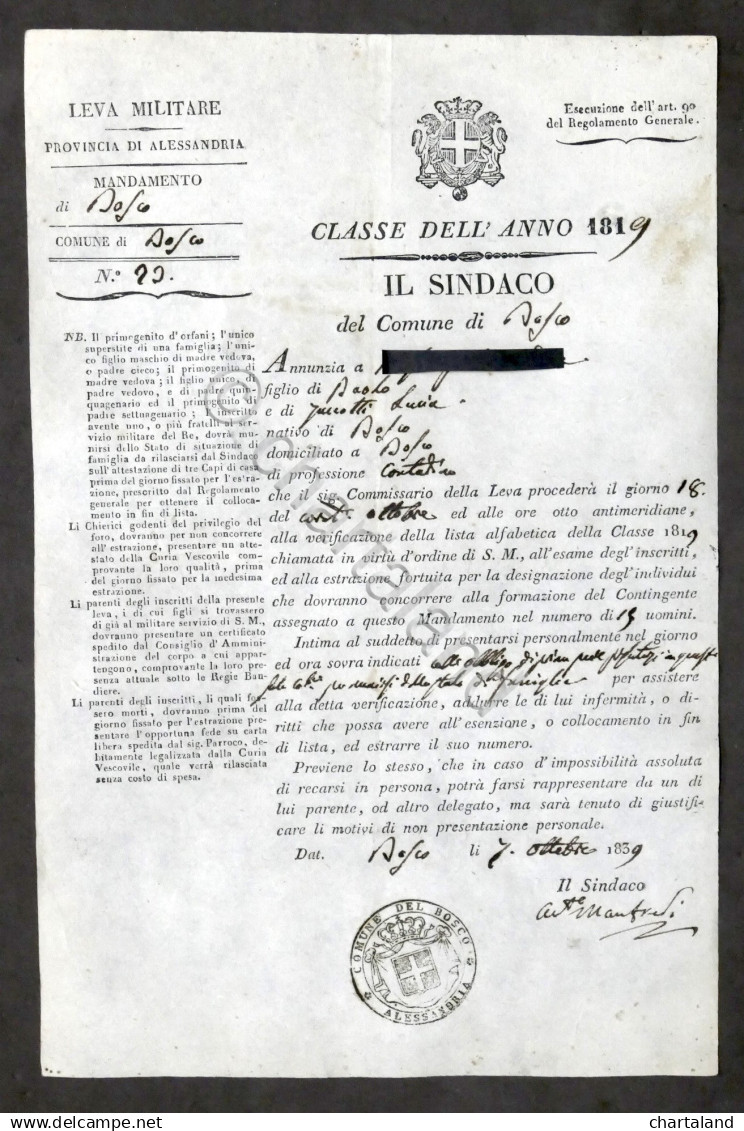 LEVA MILITARE
PROVINCIA DI ALESSANDRIA
MANDAMENTO
di Bosco
COMUNE di Bosco
N.° 23.
NB. Il primogenito d'orfani; l'unico
superstite di una famiglia; l'uni-
co figlio maschio di madre vedova,
o padre cieco; il primogenito di
madre vedova; il figlio unico di
padre vedovo, e di padre quin-
quagenario ed il primogenito di
padre settuagenario; l'inscritto
avente uno, o più fratelli al ser-
vizio militare del Re, dovrà mu-
nirsi dello Stato di situazione di
famiglia da rilasciarsi dal Sindaco
sull'attestazione di tre Capi di casa
prima del giorno fissato per l'estra-
zione, prescritto dal Regolamento
generale per ottenere il colloca-
mento in fin di lista.
Li Chierici godenti del privilegio del
foro, dovranno per non concorrere
all'estrazione, presentare un atte-
stato della Curia Vescovile com-
provante la loro qualità, prima
del giorno fissato per la medesima
estrazione.
Li parenti degli inscritti della presente
leva, i di cui figli si trovassero
di già al militare servizio di S. M.,
dovranno presentare un certificato
spedito dal Consiglio d'Ammini-
strazione del corpo a cui appar-
tengono, comprovante la loro pre-
senza attuale sotto le Regie Ban-
diere.
Li parenti degli inscritti, li quali fos-
sero morti, dovranno prima del
giorno fissato per l'estrazione pre-
sentare l'opportuna fede su carta
libera spedita dal sig. Parroco, de-
bitamente legalizzata dalla Curia
Vescovile, quale verrà rilasciata
senza costo di spesa.
Esecuzione dell'art. 90
del Regolamento Generale.
CLASSE DELL'ANNO 1819
IL SINDACO
del Comune di Bosco
Annunzia a
figlio di Paolo
e di Lucia
nativo di Bosco
domiciliato a Bosco
di professione Contadino
che il sig. Commissario della Leva procederà il giorno 18.
del corr.te ottobre ed alle ore otto antimeridiane,
alla verificazione della lista alfabetica della Classe 1819
chiamata in virtù d'ordine di S. M., all'esame degl'inscritti,
ed alla estrazione fortuita per la designazione degl'individui
che dovranno concorrere alla formazione del Contingente
assegnato a questo Mandamento nel numero di 15 uomini.
Intima al suddetto di presentarsi personalmente nel giorno
ed ora sovra indicati coll'obbligo di
famiglia per assistere
alla detta verificazione, addurre le di lui infermità, o di-
ritti che possa avere all'esenzione, o collocamento in fin
di lista, ed estrarre il suo numero.
Previene lo stesso, che in caso d'impossibilità assoluta
di recarsi in persona, potrà farsi rappresentare da un di
lui parente, od altro delegato, ma sarà tenuto di giustifi-
care li motivi di non presentazione personale.
Dat. Bosco li 7. ottobre 1839
Il Sindaco
Manfredi
COMUNE DEL BOSCO
ALESSANDRIA
© chartaland
chartaland